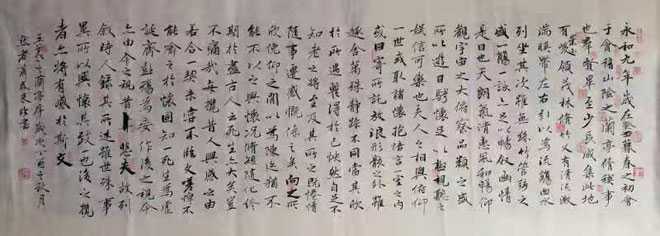 永和九年歲在癸丑暮春之初會
于會稽山陰之蘭亭脩稧事
也群賢畢至少長咸集此地
有峻領茂林脩竹又有清流激
湍暎帶左右引以為流觴曲水
列坐其次雖無絲竹管弦之
盛一觴一詠亦足以暢敘幽情
是日也天朗氣清惠風和暢仰
觀宇宙之大俯察品類之盛
所以遊目騁懷足以極視聽之
娛信可樂也夫人之相與俯仰
一世或取諸懷抱悟言一室之內
或因寄所託放浪形骸之外雖
趣舍萬殊靜躁不同當其欣
於所遇蹔得於己怏然自足不
知老之將至及其所之既惓情
隨事遷感慨係之矣向之所
欣俛仰之間以為陳迹猶不
能不以之興懷況脩短隨化終
期於盡古人云死生亦大矣豈
不痛哉每攬昔人興感之由
若合一契未嘗不臨文嗟悼不
能喻之於懷固知一死生為虛
誕齊彭殤為妄作後之視今
亦由今之視昔悲夫故列
敘時人錄其所述雖世殊事
異所以興懷其致一也後之攬
者亦將有感於斯文
王羲之蘭亭序